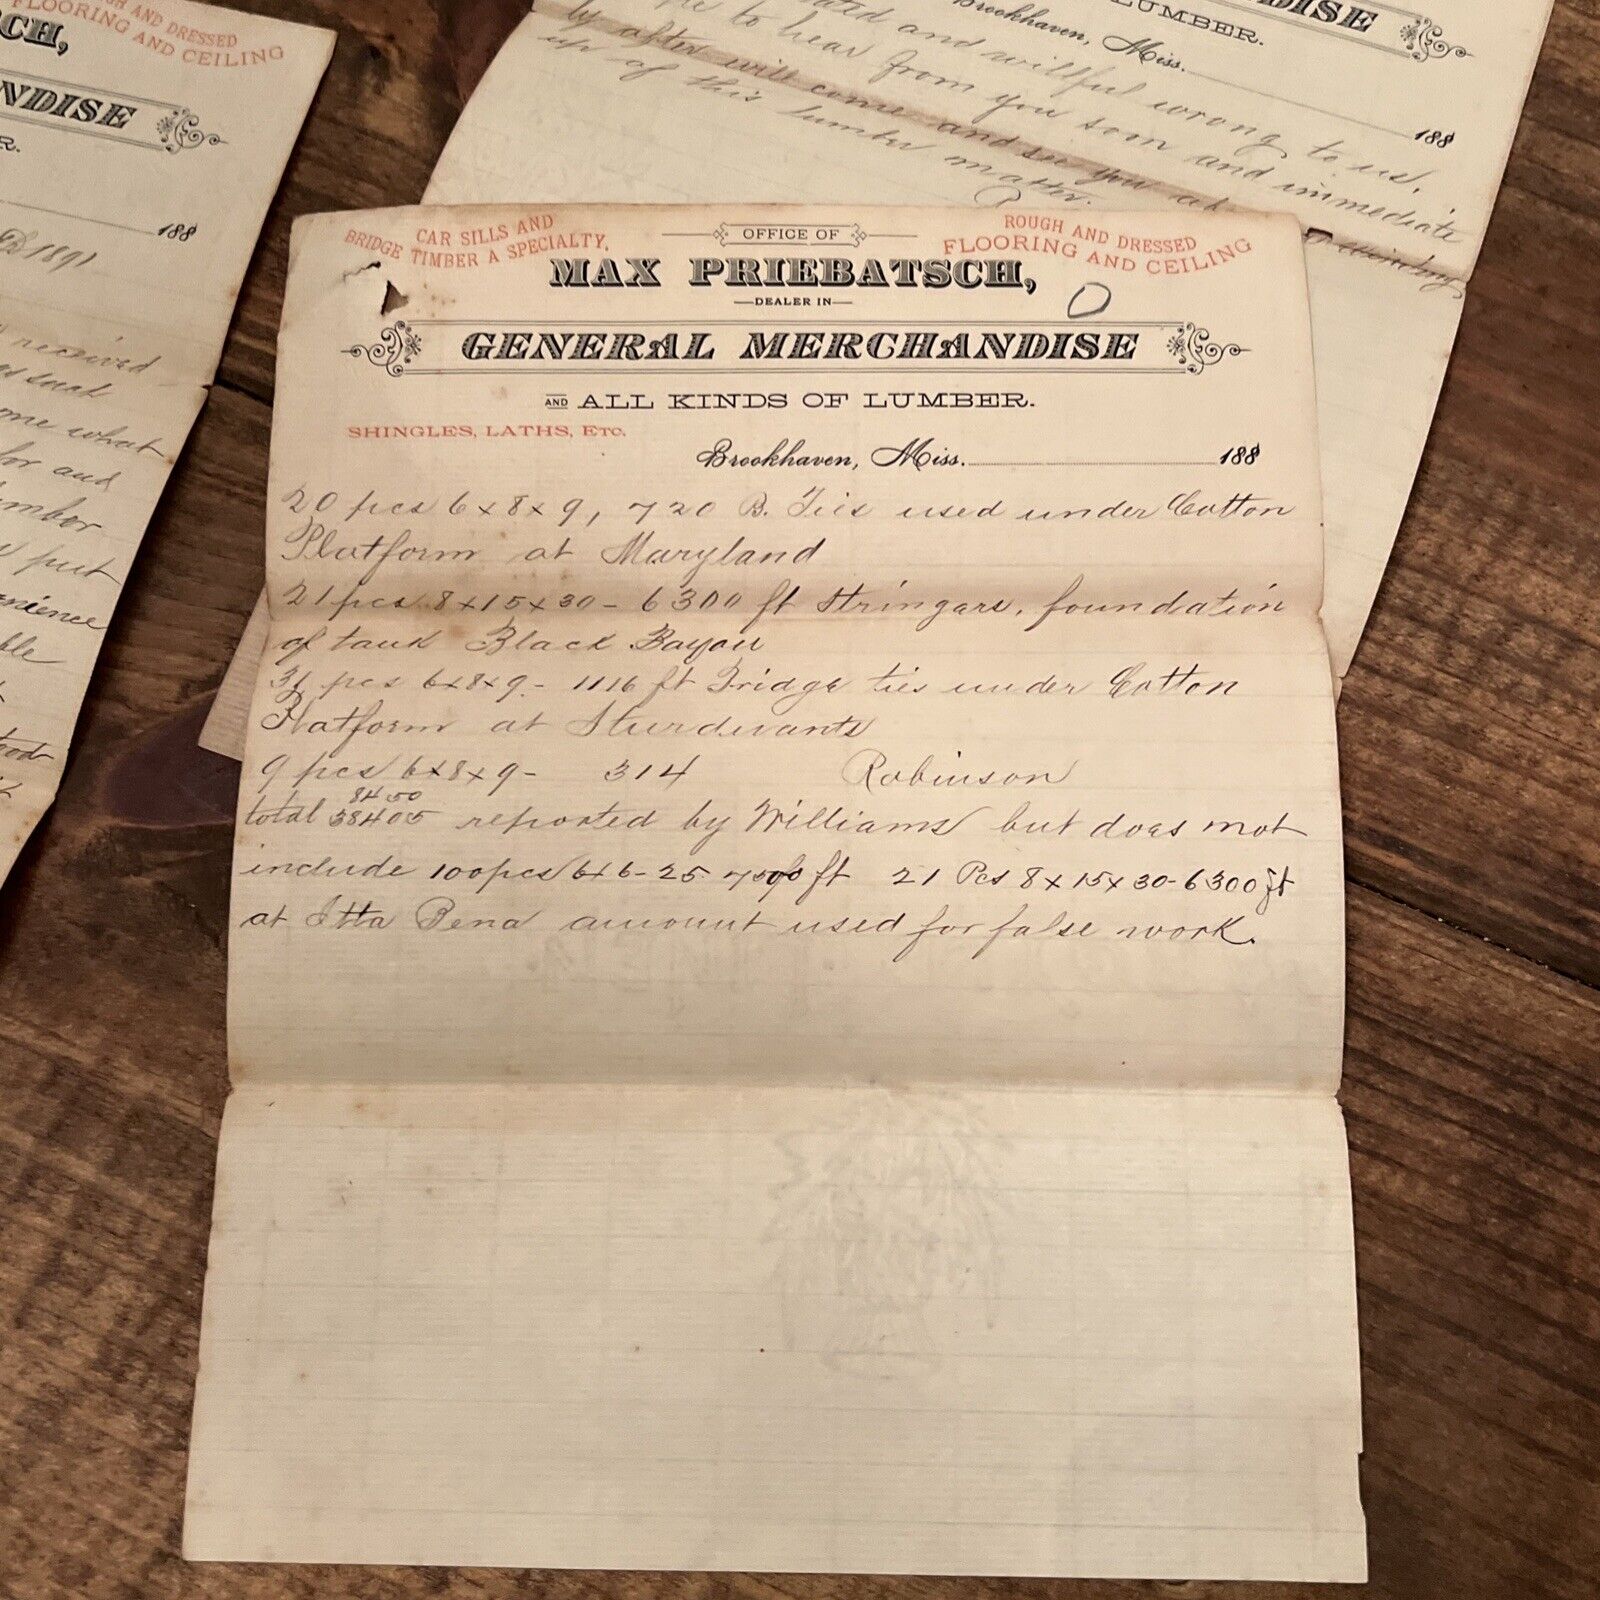 CH,
ROUGH AND DRESSED
FLOORING AND CEILING
NDISE
R.
188
1891
received
me what
for and
put
ble
DISE
LUMBER.
Brookhaven, Miss. 188
and willful wrong to us.
to hear from you soon and immediate
ly after will come and see you at
up of this lumber matter.
CAR SILLS AND
BRIDGE TIMBER A SPECIALTY.
OFFICE OF
ROUGH AND DRESSED
FLOORING AND CEILING
MAX PRIEBATSCH,
DEALER IN
GENERAL MERCHANDISE
AND ALL KINDS OF LUMBER.
SHINGLES, LATHS, ETC.
Brookhaven, Miss. 188
20 pcs 6x8x9, 720 B. Ties used under Cotton
Platform at Maryland
21 pcs 8x15x30 - 6300 ft Stringars, foundation
of tank Black Bayou
31 pcs 6x8x9 - 1116 ft Bridge ties under Cotton
Platform at Sturdivants
9 pcs 6x8x9 - 314 Robinson
8450
total 38405 reported by Williams but does not
include 100 pcs 6x6-25 7500 ft 21 Pcs 8x15x30-6300 ft
at Itta Bena amount used for false work.